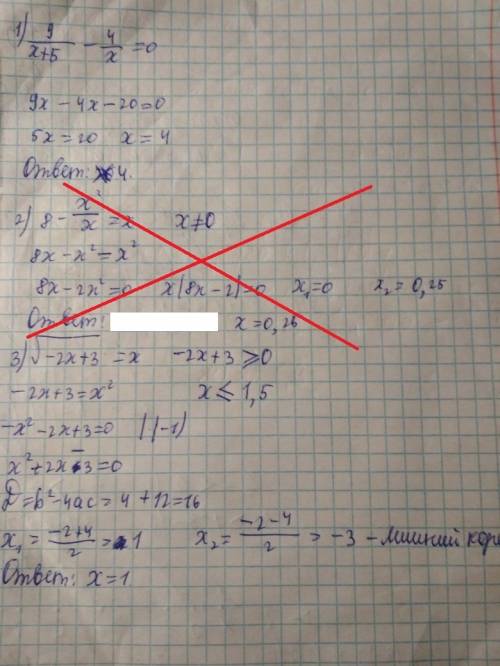 1) 9/(x+5) - 4/x = 0
9x - 4x - 20 = 0
5x = 20 x = 4
Ответ: 4.
2) 8 - x²/x = x x ≠ 0
8x - x² = x²
8x - 2x² = 0 x(8x - 2) = 0 x₁ = 0 x₂ = 0,25
Ответ: x = 0,25
3) √-2x+3 = x -2x+3 ⩾ 0
-2x+3 = x² x ⩽ 1,5
-x² - 2x + 3 = 0 |(-1)
x² + 2x - 3 = 0
D = b² - 4ac = 4 + 12 = 16
x₁ = (-2+4)/2 = 1 x₂ = (-2-4)/2 = -3 - лишний коре
Ответ: x = 1